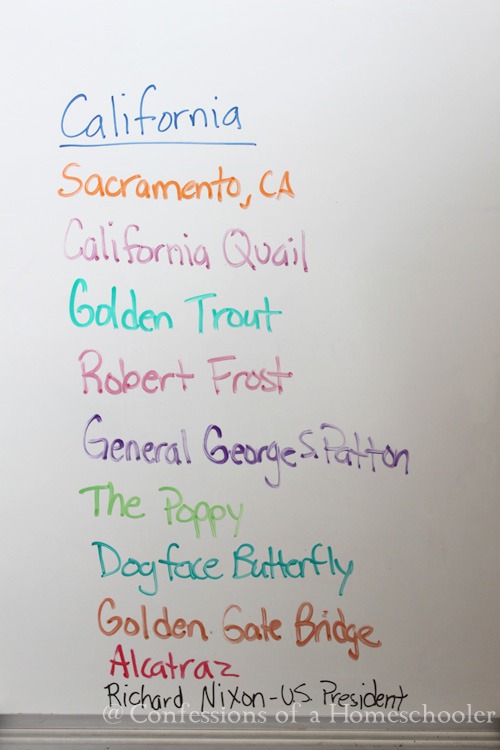 California
Sacramento, CA
California Quail
Golden Trout
Robert Frost
General George S. Patton
The Poppy
Dogface Butterfly
Golden Gate Bridge
Alcatraz
Richard Nixon - US President
@ Confessions of a Homeschooler